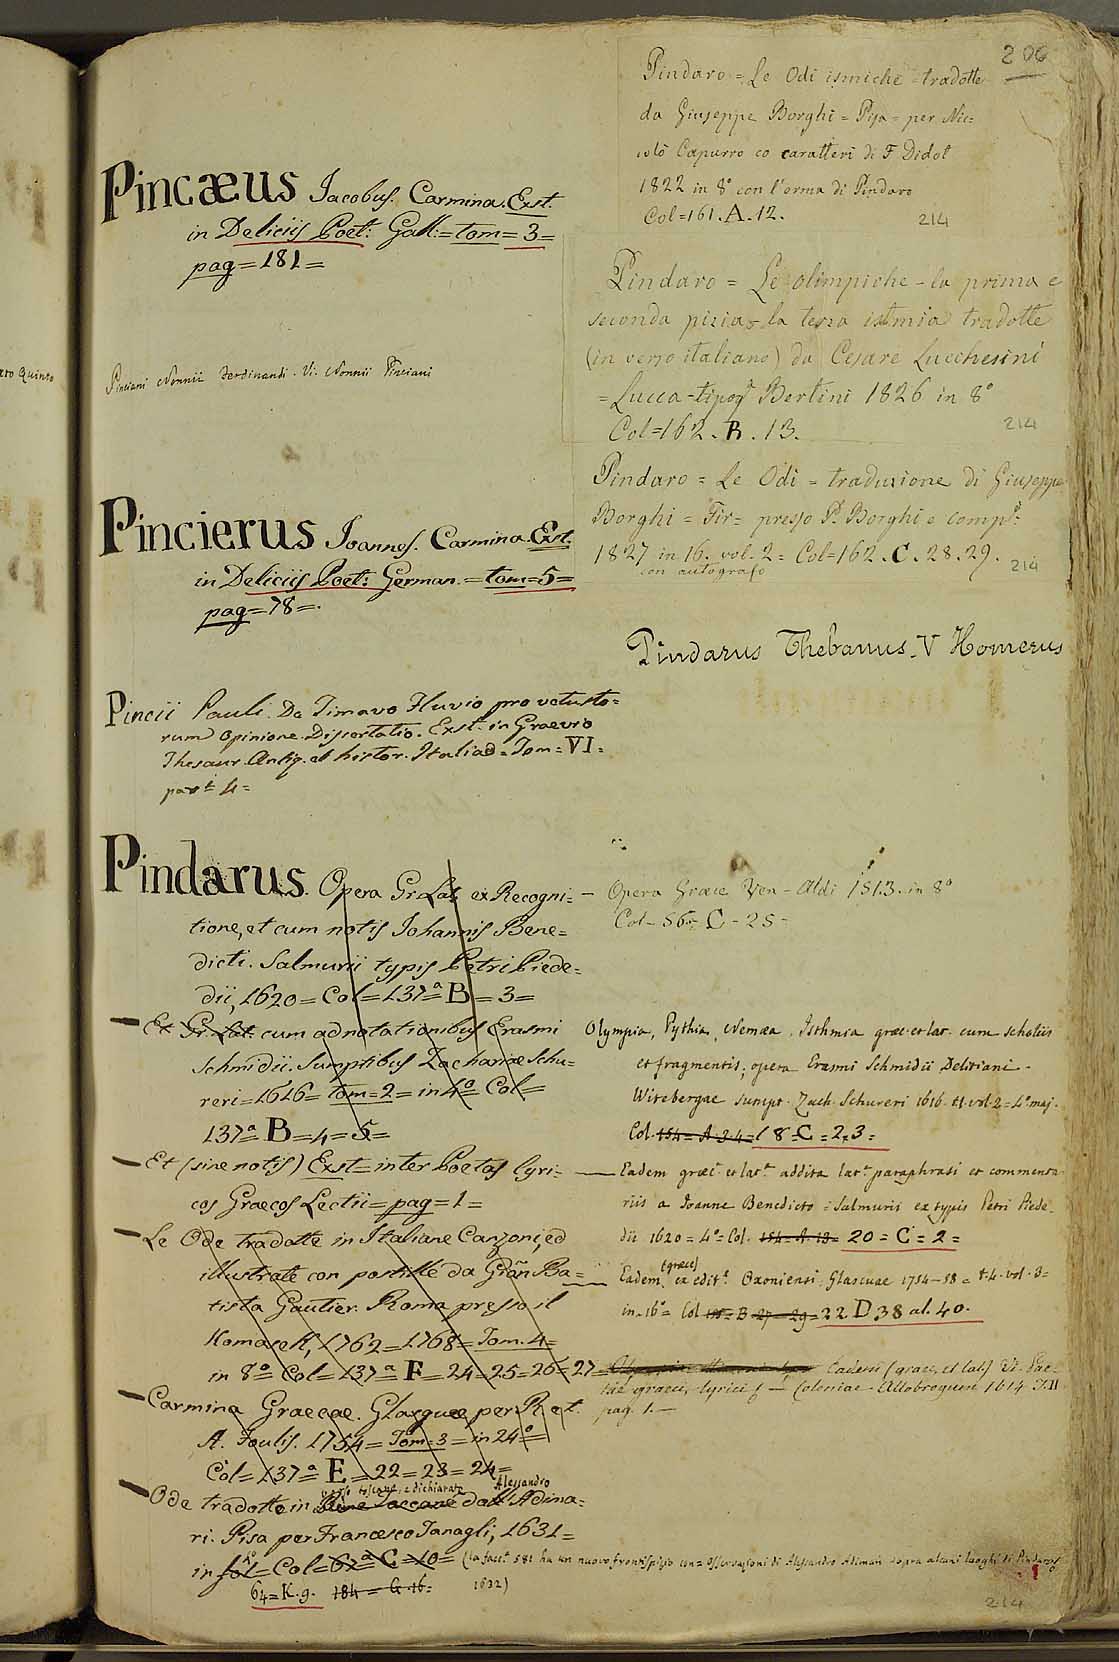 206
Pincæus Jacobus. Carmina. Exst.
in Deliciis Poet: Gall: = tom = 3 =
pag = 181 =
Pinciani Nonnii Ferdinandi. Vi. Nonnii Pinciani
Pincierus Joannes. Carmina. Exst.
in Deliciis Poet: German. = tom = 5 =
pag = 78 = .
Pincii Pauli. De Timavo Fluvio pro vetusto=
rum opinione Dissertatio. Exst. in Graevio
Thesaur. Antiq. et histor. Italiae = Tom = VI =
part. 4 =
Pindarus. Opera Gr. Lat. ex Recogni=
tione, et cum notis Johannis Bene=
dicti. Salmurii typis Petri Piede=
dii, 1620 = Col = 137ª = B = 3 =
Et Gr. Lat. cum adnotationibus Erasmi
Schmidii. Sumptibus Zachariae Schu=
reri = 1616 = tom = 2 = in 4º Col =
137ª B = 4 = 5 =
Et (sine notis) Exst = inter Poetas lyri=
cos Graecos Lectii = pag = 1 =
Le Ode tradotte in Italiane Canzoni, ed
illustrate con postille da Gian Ba=
tista Gautier. Roma presso il
Komarek, 1762 = 1768 = Tom. 4 =
in 8º = Col = 137ª = F = 24 = 25 = 26 = 27 =
Carmina Graece. Glasguae per R. et
A. Foulis. 1754 = Tom = 3 = in 24º =
Col = 137ª = E = 22 = 23 = 24 =
verso toscano, e dichiarate Alessandro
Ode tradotte in Rime Toscane dall'Adima=
ri. Pisa per Francesco Tanagli, 1631 =
in fol = 4º Col = 67ª = C = 10 = (la facc.ª 581 ha un nuovo frontispizio con = Osservazioni di Alessandro Adimari sopra alcuni luoghi di Pindaro
64 = K. 9. 184 = G. 16 = 1632)
Pindaro = Le Odi ismiche tradotte
da Giuseppe Borghi = Pisa = per Nic=
colò Capurro co caratteri di F Didot
1822 in 8º con l'orma di Pindaro
Col = 161. A. 12.
214
Pindaro = Le olimpiche - la prima e
seconda pizia - la terza istmia tradotte
(in verso italiano) da Cesare Lucchesini
= Lucca - tipogª Bertini 1826 in 8º
Col = 162. B. 13.
214
Pindaro = Le Odi = traduzione di Giuseppe
Borghi = Fir = presso P. Borghi e compª:
1827 in 16. vol. 2 = Col = 162. C. 28. 29.
con autografo
214
Pindarus Thebanus. V Homerus
Opera Graece Ven - Aldi 1513. in 8º
Col - 56 - C - 25 -
Olympia, Pythia, Nemea, Isthmia graec. et lat. cum scholiis
et fragmentis; opera Erasmi Schmidii Delitiani.
Witebergae sumpt. Zach. Schureri 1616. tt. vol. 2 = 4º maj.
Col. 154 = A 3 4 = 18 = C = 2, 3 =
Eadem graec. et latª addita latª paraphrasi et commenta
riis a Joanne Benedicto = Salmurii ex typis Petri Piede=
dii 1620 = 4º = Col. 154 = A. 13 = 20 = C = 2 =
(graece)
Eadem ex editª Oxoniensi. Glascuae 1754-58 = t. 4. vol. 3 =
in 16º = Col = B 27 - 29 = 22. D 38 al. 40.
Eadem (graec. et lat.) Vi. Poe=
tae graeci, lyrici = Coloniae = Allobrogum 1614 T. II
pag. 1. —
214